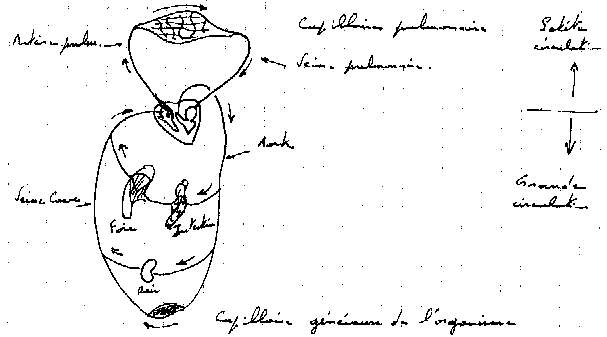 Capillaires pulmonaires
Petite
circulat.
Artère pulm.
Veine pulmonaire.
Aorte
Veine Cave
Grande
circulat.
Foie
Intestin
Rein
Capillaires généraux de l'organisme